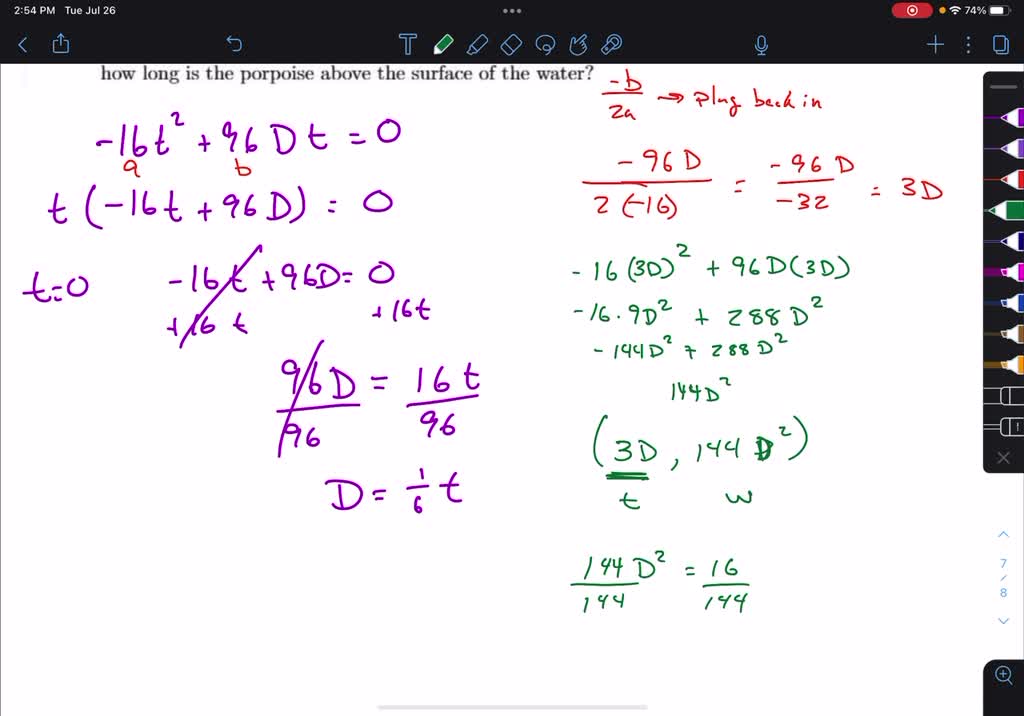 2:54 PM Tue Jul 26
74%
how long is the porpoise above the surface of the water?
-16t² + 96Dt = 0
a b
t(-16t + 96D) = 0
t=0
-16t + 96D = 0
+16t +16t
96D = 16t
96 96
D = 1/6 t
-b/2a → plug back in
-96D / 2(-16) = -96D / -32 = 3D
-16(3D)² + 96D(3D)
-16·9D² + 288D²
-144D² + 288D²
144D²
(3D, 144D²)
t w
144D² = 16
144 144
7
/
8